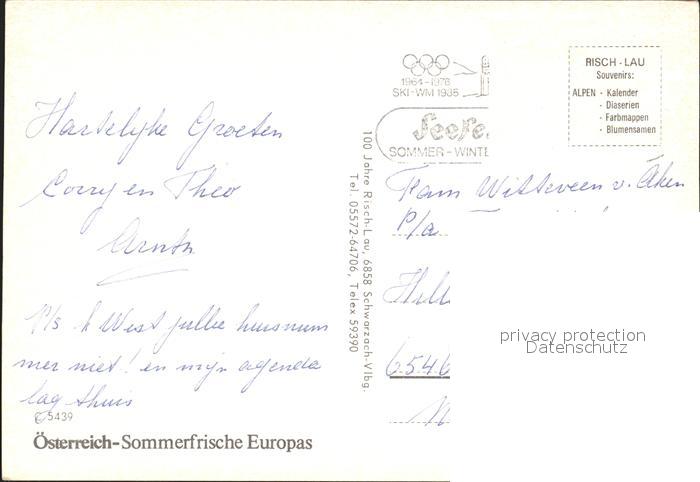 Hartelijke Groeten
Corry en Theo
P/s. k West jullie huisnum
mer niet! en mijn agenda
lag thuis
C 5439
Österreich-Sommerfrische Europas
100 Jahre Risch-Lau, 6858 Schwarzach-Vlbg.
Tel. 05572-64706, Telex 59390
1964-1976
SKI-WM 1985
Seefe
SOMMER-WINTE
RISCH-LAU
Souvenirs:
ALPEN - Kalender
- Diaserien
- Farbmappen
- Blumensamen
Fam Witteveen v. Aken
P/a
6546
privacy protection
Datenschutz